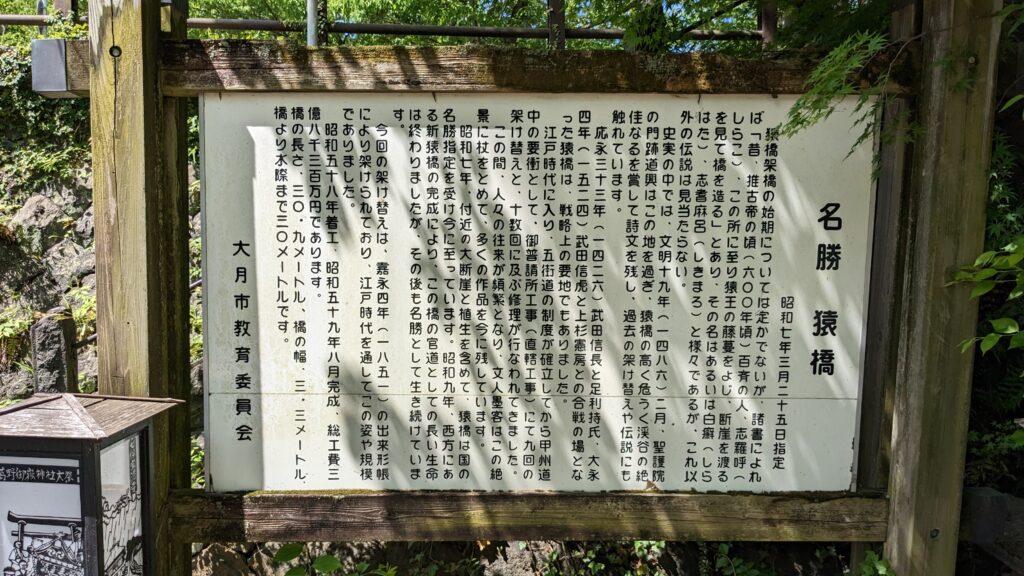 名勝 猿橋
昭和七年三月二十五日指定
猿橋架橋の始期については定かでないが、諸書によれ
ば「昔、推古帝の頃(六〇〇年頃)百済の人、志羅呼(
しらこ)、この所に至り猿王の藤蔓をよじ、断崖を渡る
を見て橋を造る」とあり、その名はあるいは白癬(しら
はた)、志耆麻呂(しきまろ)と様々であるが、これ以
外の伝説は見当たらない。
史実の中では、文明十九年(一四八六)二月、聖護院
の門跡道興はこの地を過ぎ、猿橋の高く危うく、渓谷の絶
佳なるを賞して詩文を残し、過去の架け替えや伝説にも
触れています。
応永三十三年(一四二六)武田信長と足利持氏、大永
四年(一五二四)武田信虎と上杉憲房との合戦の場とな
った猿橋は、戦略上の要地でもありました。
江戸時代に入り、五街道の制度が確立してから甲州道
中の要衝として、御普請所工事(直轄工事)にて九回の
架け替えと、十数回に及ぶ修理が行なわれてきました。
この間、人々の往来が頻繁となり、文人墨客はこの絶
景に杖をとめて、多くの作品を今に残しています。
昭和七年、付近の大断崖と植生を含めて、猿橋は国の
名勝指定を受け今に至っています。昭和九年、西方にあ
る新猿橋の完成により、この橋の官道としての長い生命
は終わりましたが、その後も名勝として生き続けていま
す。
今回の架け替えは、嘉永四年(一八五一)の出来形帳
により架けられており、江戸時代を通してこの姿や規模
でありました。
昭和五十八年着工、昭和五十九年八月完成、総工費三
億八千三百万円であります。
橋の長さ、三〇.九メートル、橋の幅、三.三メートル、
橋より水際まで三〇メートルです。
大月市教育委員会